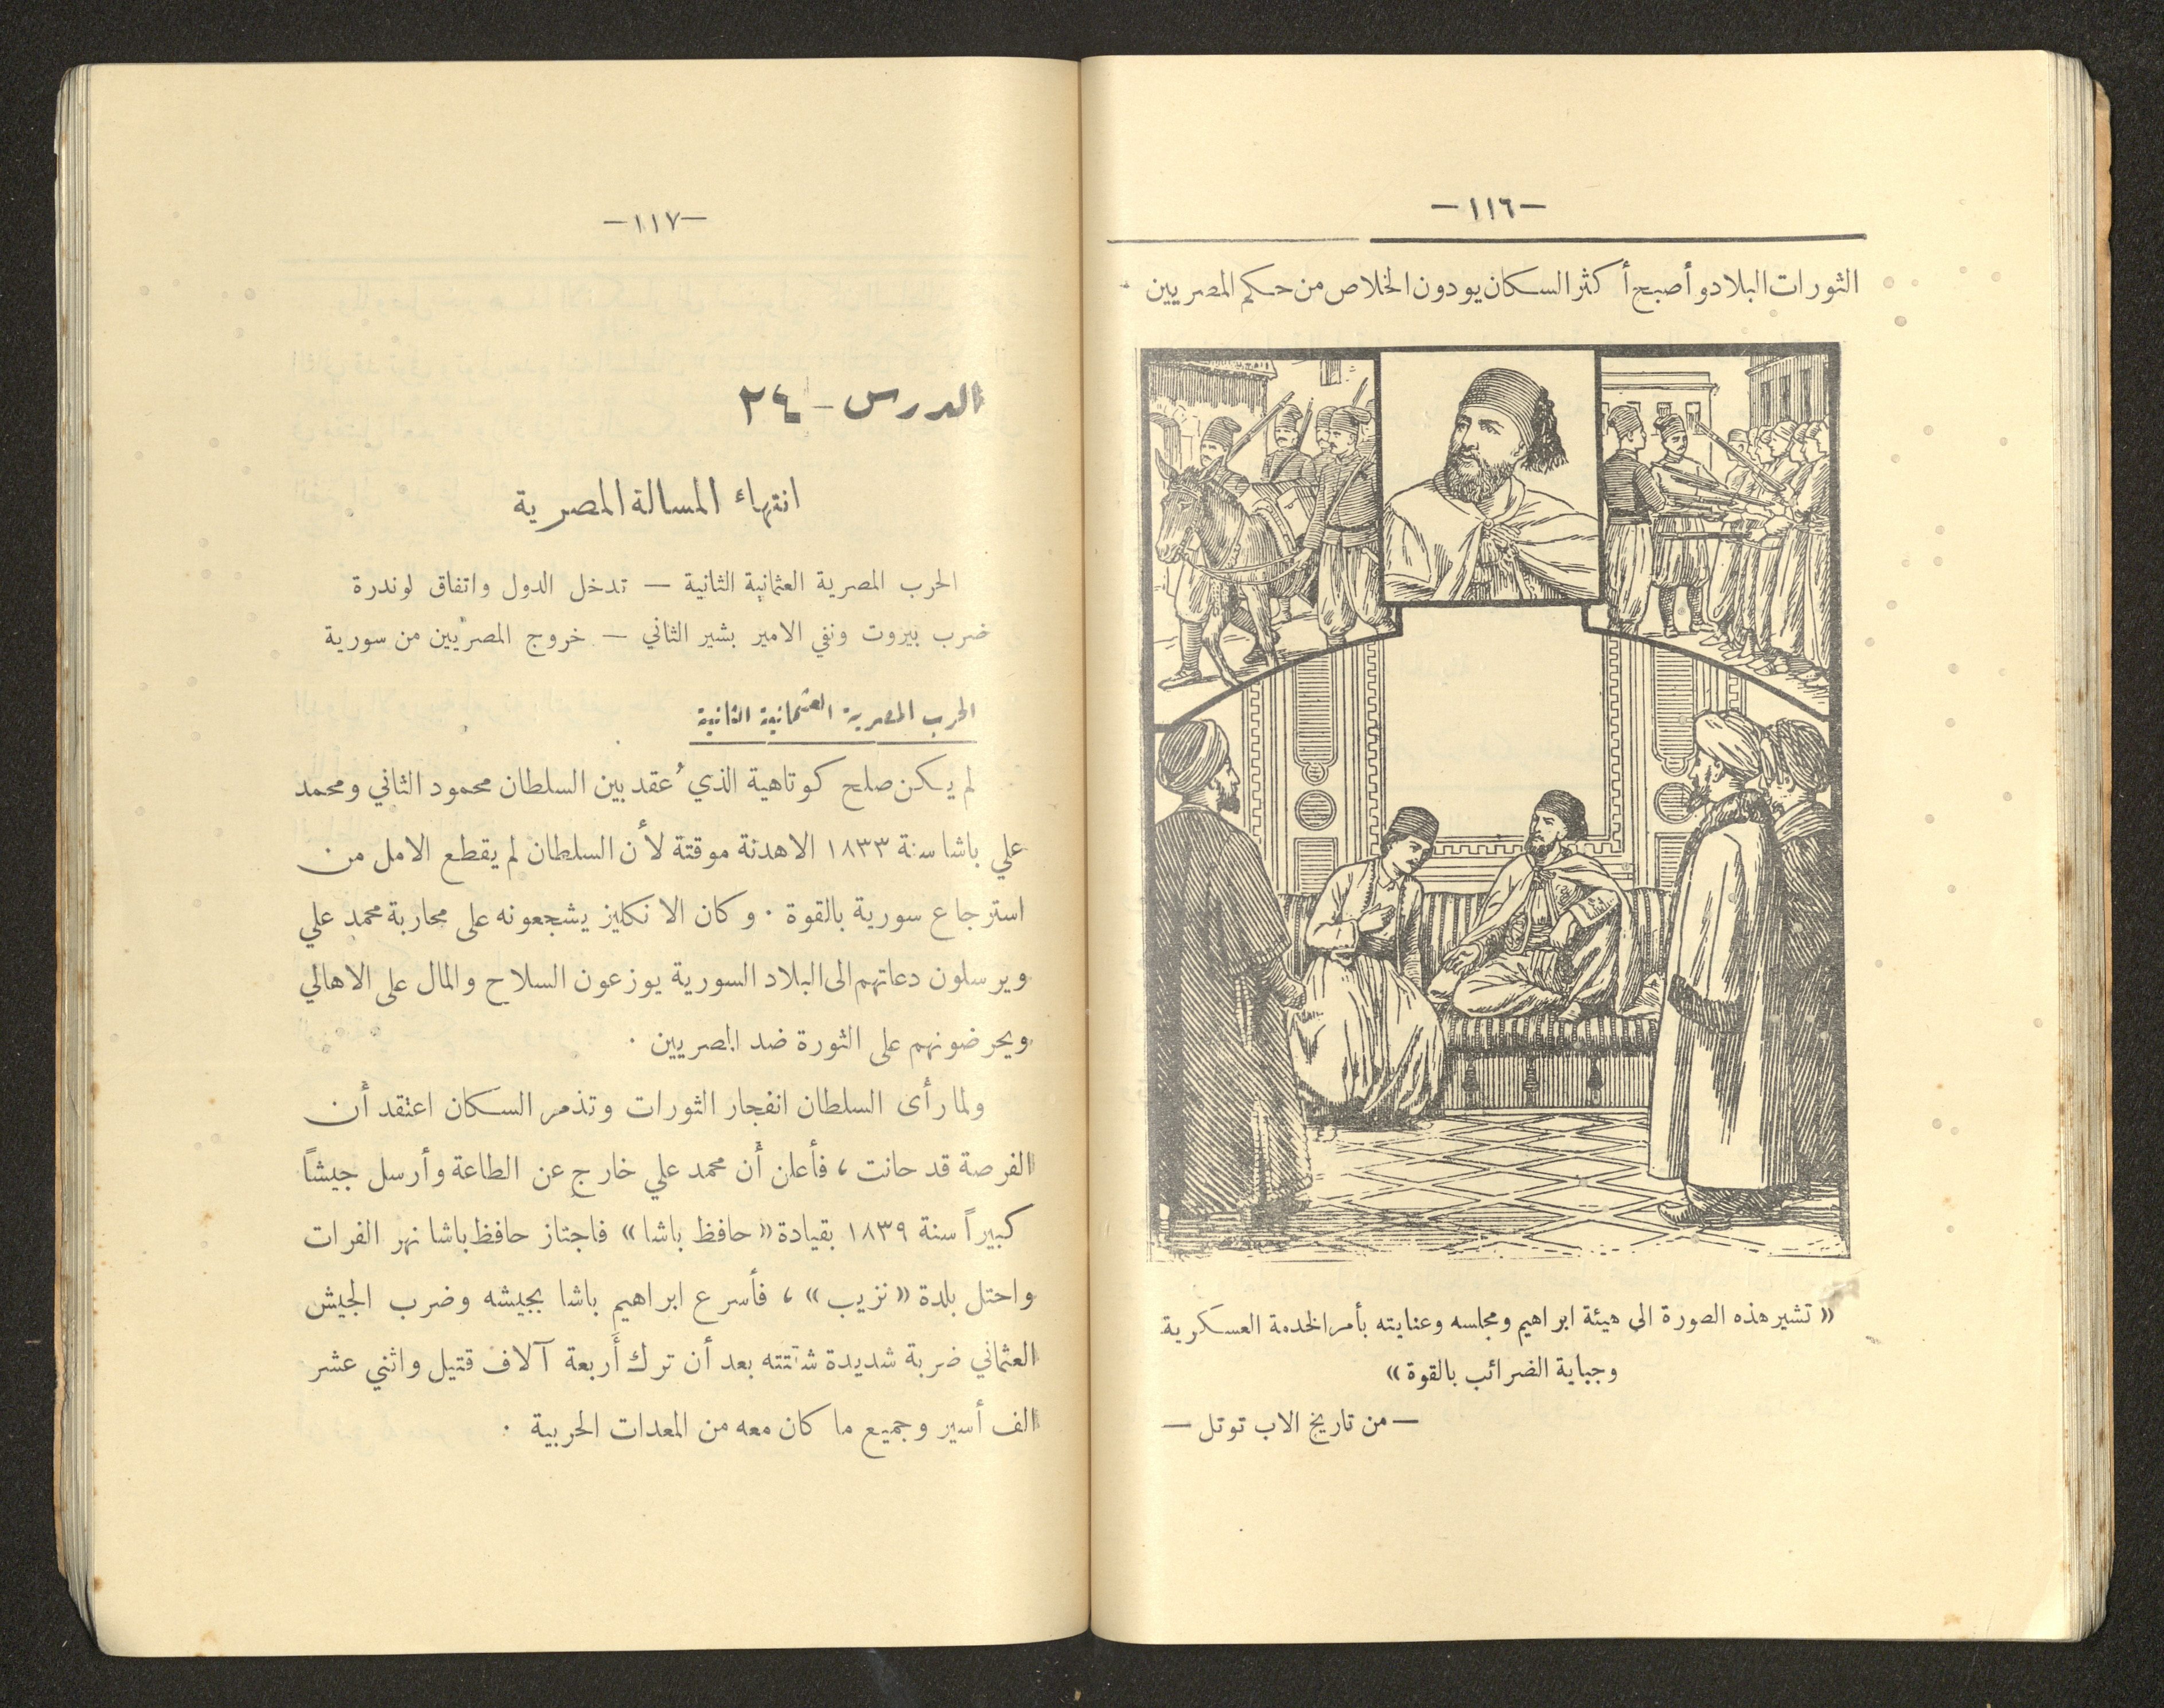 –١١٦–
الثورات البلاد وأصبح أكثر السكان يودون الخلاص من حكم المصريين ٠
« تشير هذه الصورة الى هيئة ابراهيم ومجلسه وعنايته بأمر الخدمة العسكرية
وجباية الضرائب بالقوة »
— من تاريخ الاب توتل —
–١١٧–
الدرس – ٢٤
انتهاء المسالة المصرية
الحرب المصرية العثمانية الثانية — تدخل الدول واتفاق لوندرة
ضرب بيروت ونفي الامير بشير الثاني — خروج المصريين من سورية
الحرب المصرية العثمانية الثانية
لم يكن صلح كوتاهية الذي عُقد بين السلطان محمود الثاني ومحمد
علي باشا سنة ١٨٣٣ الا هدنة موقتة لأن السلطان لم يقطع الامل من
استرجاع سورية بالقوة ٠ وكان الانكليز يشجعونه على محاربة محمد علي
ويرسلون دعاتهم الى البلاد السورية يوزعون السلاح والمال على الاهالي
ويحرضونهم على الثورة ضد المصريين ٠
ولما رأى السلطان انفجار الثورات وتذمر السكان اعتقد أن
الفرصة قد حانت ، فأعلن أن محمد علي خارج عن الطاعة وأرسل جيشاً
كبيراً سنة ١٨٣٩ بقيادة « حافظ باشا » فاجتاز حافظ باشا نهر الفرات
واحتل بلدة « نزيب » ، فأسرع ابراهيم باشا بجيشه وضرب الجيش
العثماني ضربة شديدة شتته بعد أن ترك أربعة آلاف قتيل واثني عشر
الف أسير وجميع ما كان معه من المعدات الحربية ٠